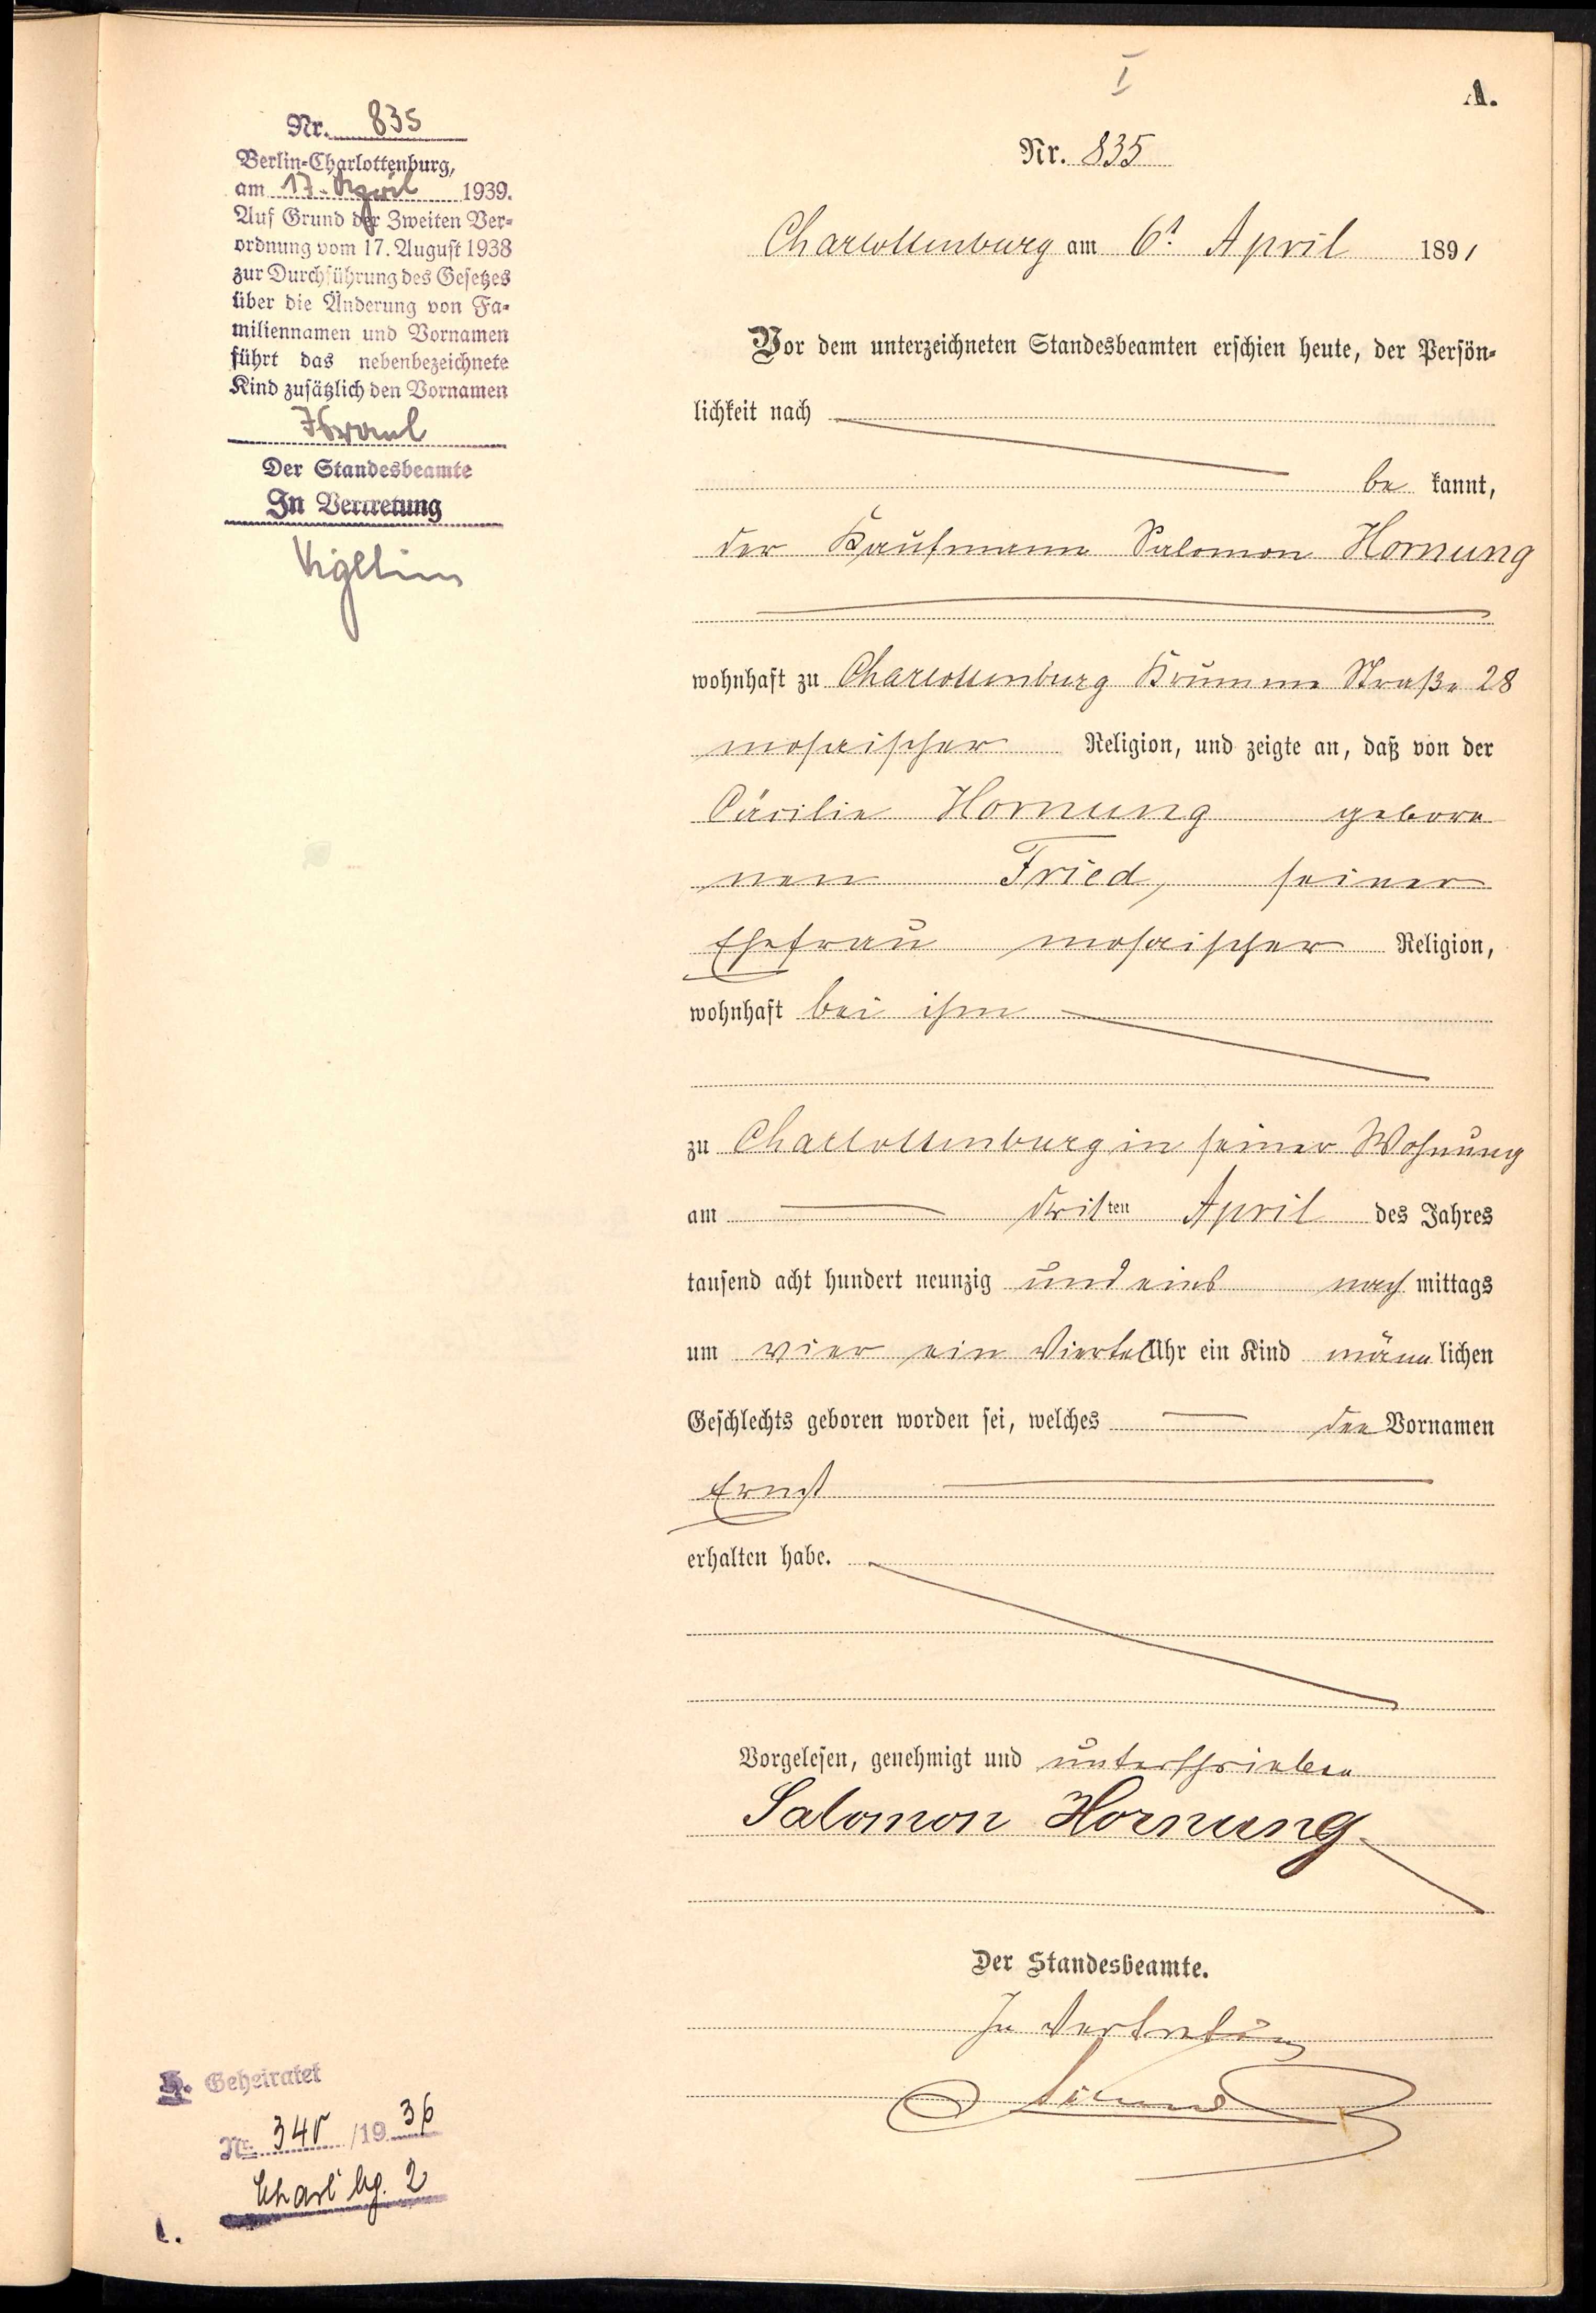 I
A.
Nr. 835
Charlottenburg am 6t April 1891
Vor dem unterzeichneten Standesbeamten erschien heute, der Persön-
lichkeit nach
be kannt,
der Kaufmann Salomon Hornung
wohnhaft zu Charlottenburg Krumme Straße 28
mosaischer Religion, und zeigte an, daß von der
Cäcilie Hornung gebore
nen Fried, seiner
Ehefrau mosaischer Religion,
wohnhaft bei ihm
zu Charlottenburg in seiner Wohnung
am dritten April des Jahres
tausend acht hundert neunzig und eins nach mittags
um vier ein Viertel Uhr ein Kind männ lichen
Geschlechts geboren worden sei, welches den Vornamen
Ernst
erhalten habe.
Vorgelesen, genehmigt und unterschrieben
Salomon Hornung
Der Standesbeamte.
In Vertretung
Nr. 835
Berlin-Charlottenburg,
am 17. April 1939.
Auf Grund der Zweiten Ver-
ordnung vom 17. August 1938
zur Durchführung des Gesetzes
über die Änderung von Fa-
miliennamen und Vornamen
führt das nebenbezeichnete
Kind zusätzlich den Vornamen
Israel
Der Standesbeamte
In Vertretung
Geheiratet
Nr. 340 /19 36
Charlbg. 2